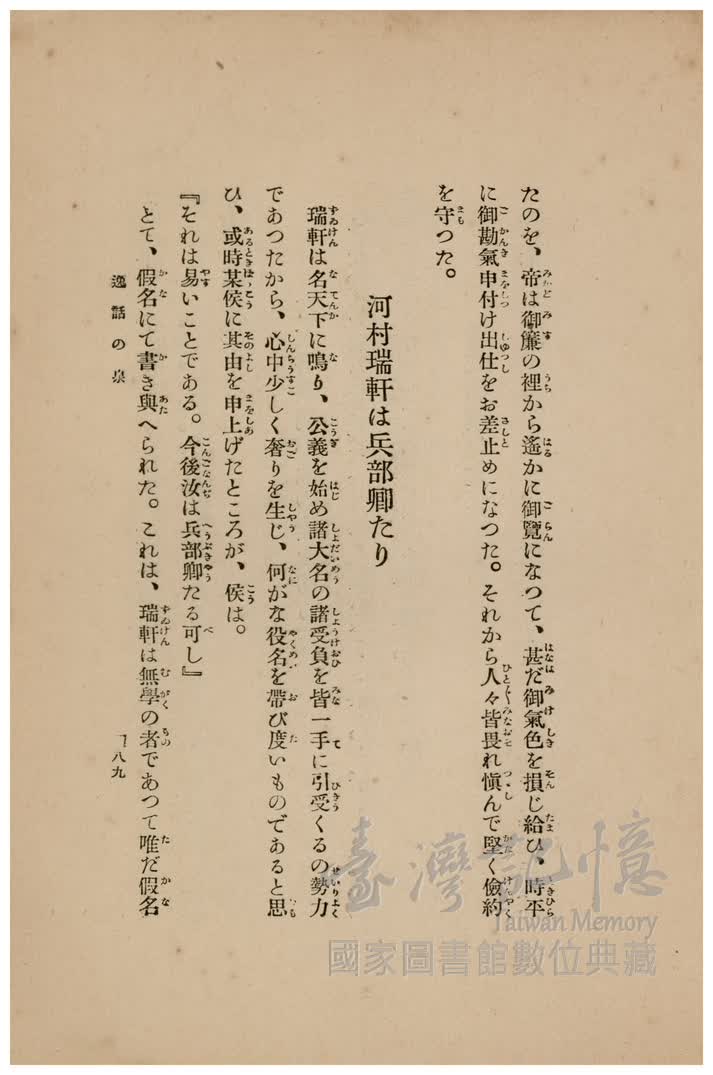 たのを、帝は御簾の裡から遙かに御覽になつて、甚だ御氣色を損じ給ひ、時平
に御勘氣申付け出仕をお差止めになつた。それから人々皆畏れ愼んで堅く儉約
を守つた。
河村瑞軒は兵部卿たり
瑞軒は名天下に鳴り、公義を始め諸大名の諸受負を皆一手に引受くるの勢力
であつたから、心中少しく奢りを生じ、何がな役名を帶び度いものであると思
ひ、或時某侯に其由を申上げたところが、侯は。
『それは易いことである。今後汝は兵部卿たる可し』
とて、假名にて書き與へられた。これは、瑞軒は無學の者であつて唯だ假名
逸話の泉
一八九
臺灣記憶
Taiwan Memory
國家圖書館數位典藏